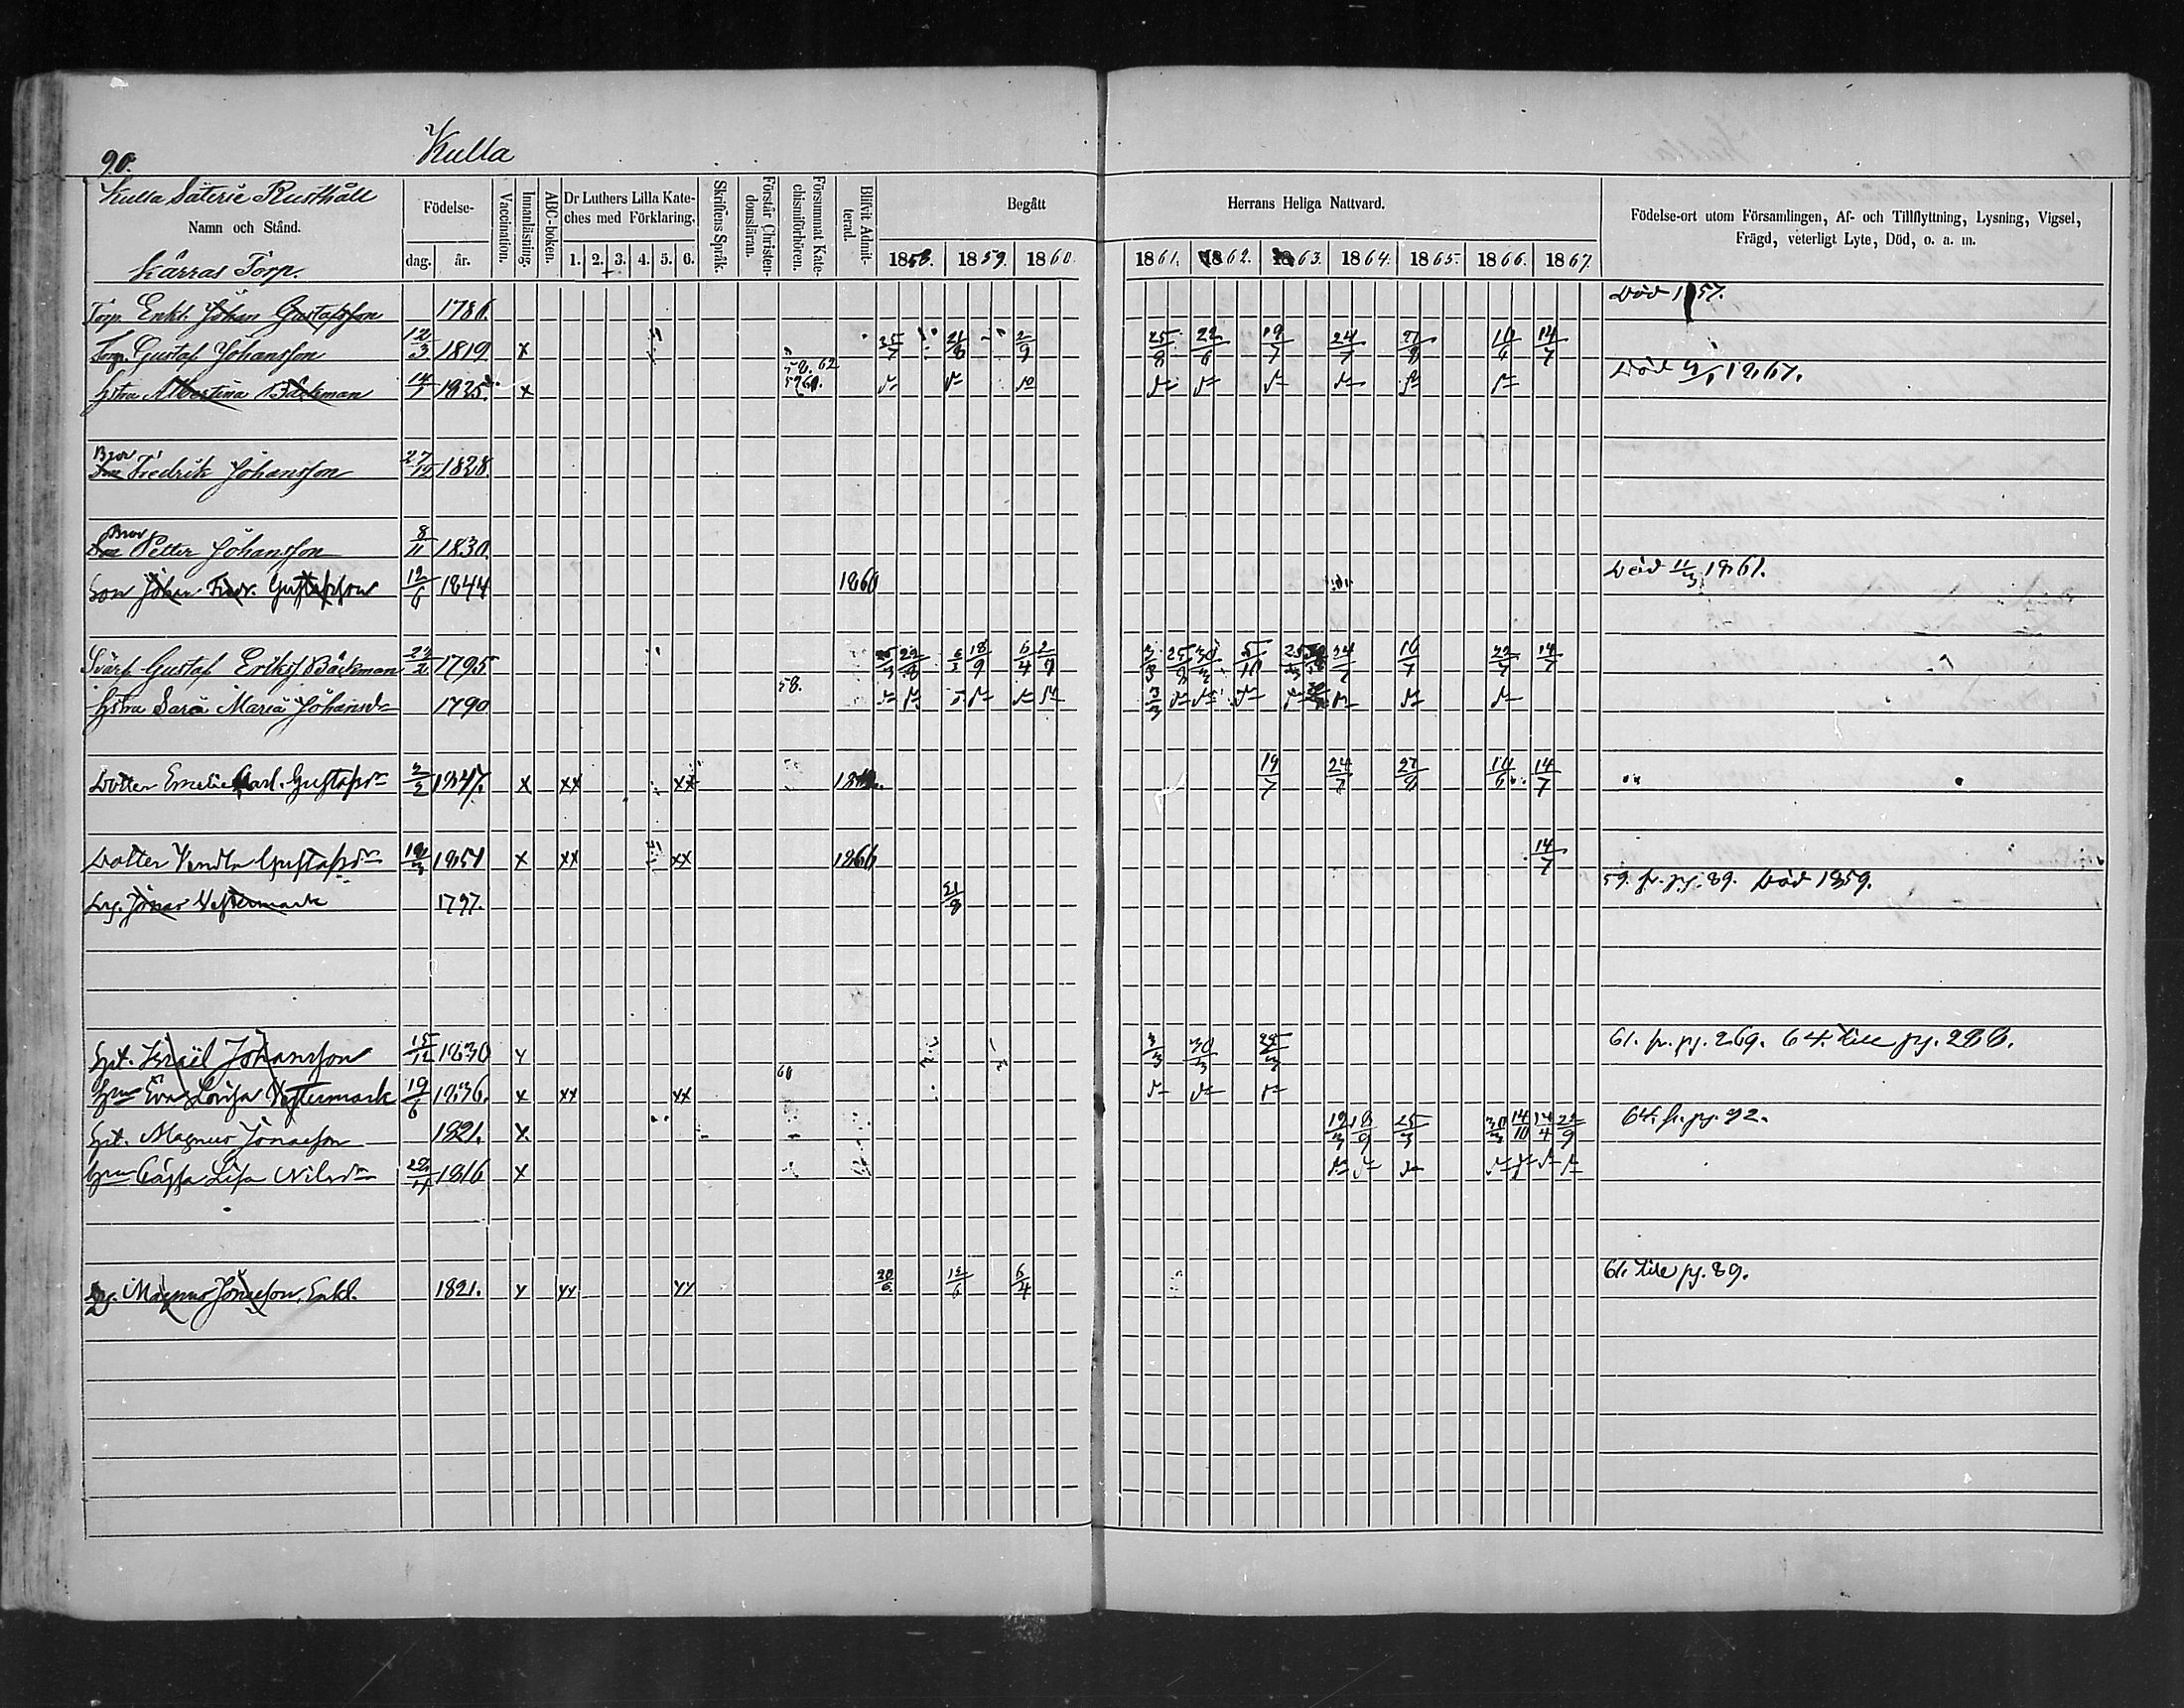 90.
Kulla
Kulla Säterie Rusthåll
Namn och Stånd.
Kärras Torp.
Födelse-
dag. år.
Vaccination.
Innanläsning.
ABC-boken.
Dr Luthers Lilla Kate-
ches med Förklaring.
1. 2. 3. 4. 5. 6.
Skriftens Språk.
Förstår Christen-
domsläran.
Försummat Kate-
chismiförhören.
Blifvit Admit-
terad.
Begått
1858. 1859. 1860
Herrans Heliga Nattvard.
1861. 1862. 1863. 1864. 1865. 1866. 1867.
Födelse-ort utom Församlingen, Af- och Tillflyttning, Lysning, Vigsel,
Frägd, veterligt Lyte, Död, o. a. m.
Torp. Enkl. Johan Gustafsson 1786 Död 1857.
Torp. Gustaf Johansson 12/3 1819 x 21/8 2/9 25/8 22/6 19/7 24/7 27/8 14/7
Hstru Albertina Bäckman 1825. x 58. 62 Död 1867.
Bror Fredrik Johansson 27/12 1828.
Bror Petter Johansson 8/11 1830
Son Johan Fredr. Gustafsson 12/6 1844 1860 Död 11/3 1861.
Svärf. Gustaf Eriksf. Bäckman 1795 18/9 6/4 3/3 25/8 30/3 5/10 24/7 16/7 14/7
Hstru Sara Maria Johansdr 1790 58. 3/3
Dotter Emelie Carl. Gustafsdr 1847. x xx xx 19/7 24/7 27/8 14/7
Dotter Vendla Gustafsdr 1851 x xx xx 1866 14/7
Drg. Jonas Vestermark 1797. 21/8 59. fr. pg. 89. Död 1859.
Spt. Israël Johansson 15/12 1830 x 3/3 30/3 25/3 61. fr. pg. 269. 64. till pg. 288.
Hrun Eva Lovisa Vestermark 19/6 1836. x xx xx 60
Spt. Magnus Jonasson 1821. x 19/3 18/9 25/3 30/3 14/10 14/4 22/9 64. fr. pg. 92.
Hrun Cajsa Lisa Nilsdr 1816 x
Drg. Magnus Jonasson, Enkl. 1821. x xx xx 20/6 6/4 61. till pg. 89.